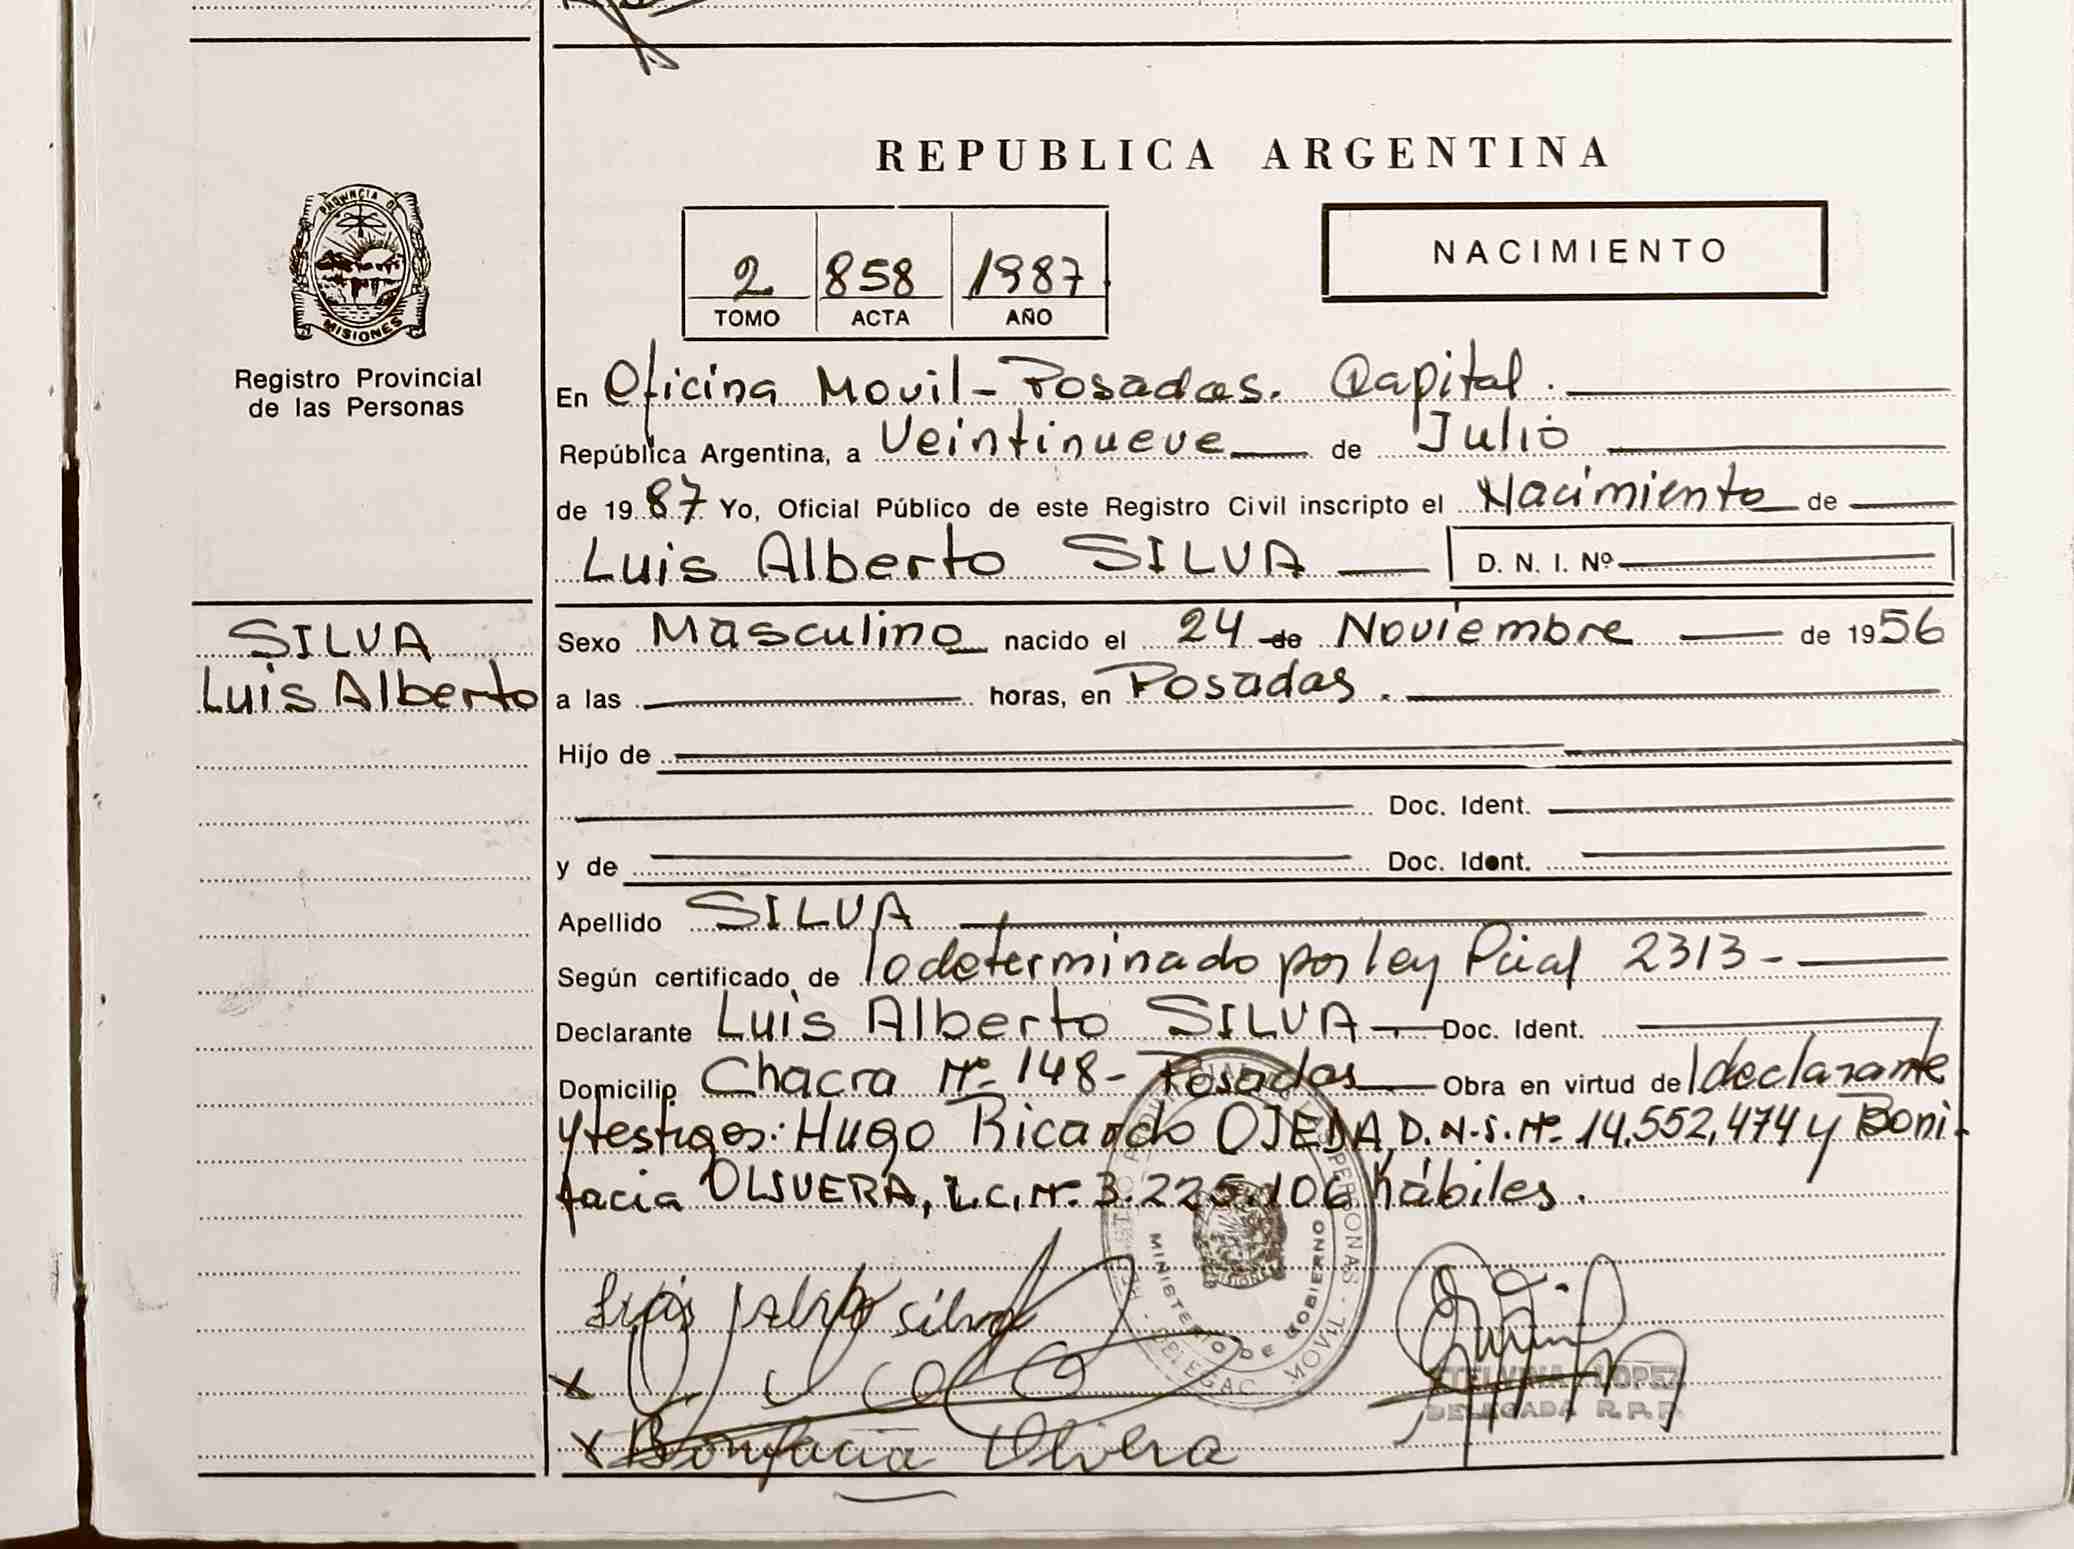 REPUBLICA ARGENTINA
PROVINCIA DE
MISIONES
Registro Provincial
de las Personas
2 858 1987
TOMO ACTA AÑO
NACIMIENTO
En Oficina Movil - Posadas. Capital.
República Argentina, a Veintinueve de Julio
de 1987 Yo, Oficial Público de este Registro Civil inscripto el Nacimiento de
Luis Alberto SILVA D. N. I. Nº
SILVA
Luis Alberto
Sexo Masculino nacido el 24 de Noviembre de 1956
a las horas, en Posadas.
Hijo de
Doc. Ident.
y de Doc. Ident.
Apellido SILVA
Según certificado de lo determinado por ley Pcial 2313 -
Declarante Luis Alberto SILVA - Doc. Ident.
Domicilio Chacra Nº 148 - Posadas Obra en virtud de l declarante
y testigos: Hugo Ricardo OJEDA, D.N.I. Nº 14.552.474 y Boni-
facia OLIVERA, L.C. Nº 3.225.106 hábiles.
MINISTERIO DE GOBIERNO
Luis Alberto Silva
x
x Bonifacia Olivera
LOPEZ
DELEGADA R.P.P.